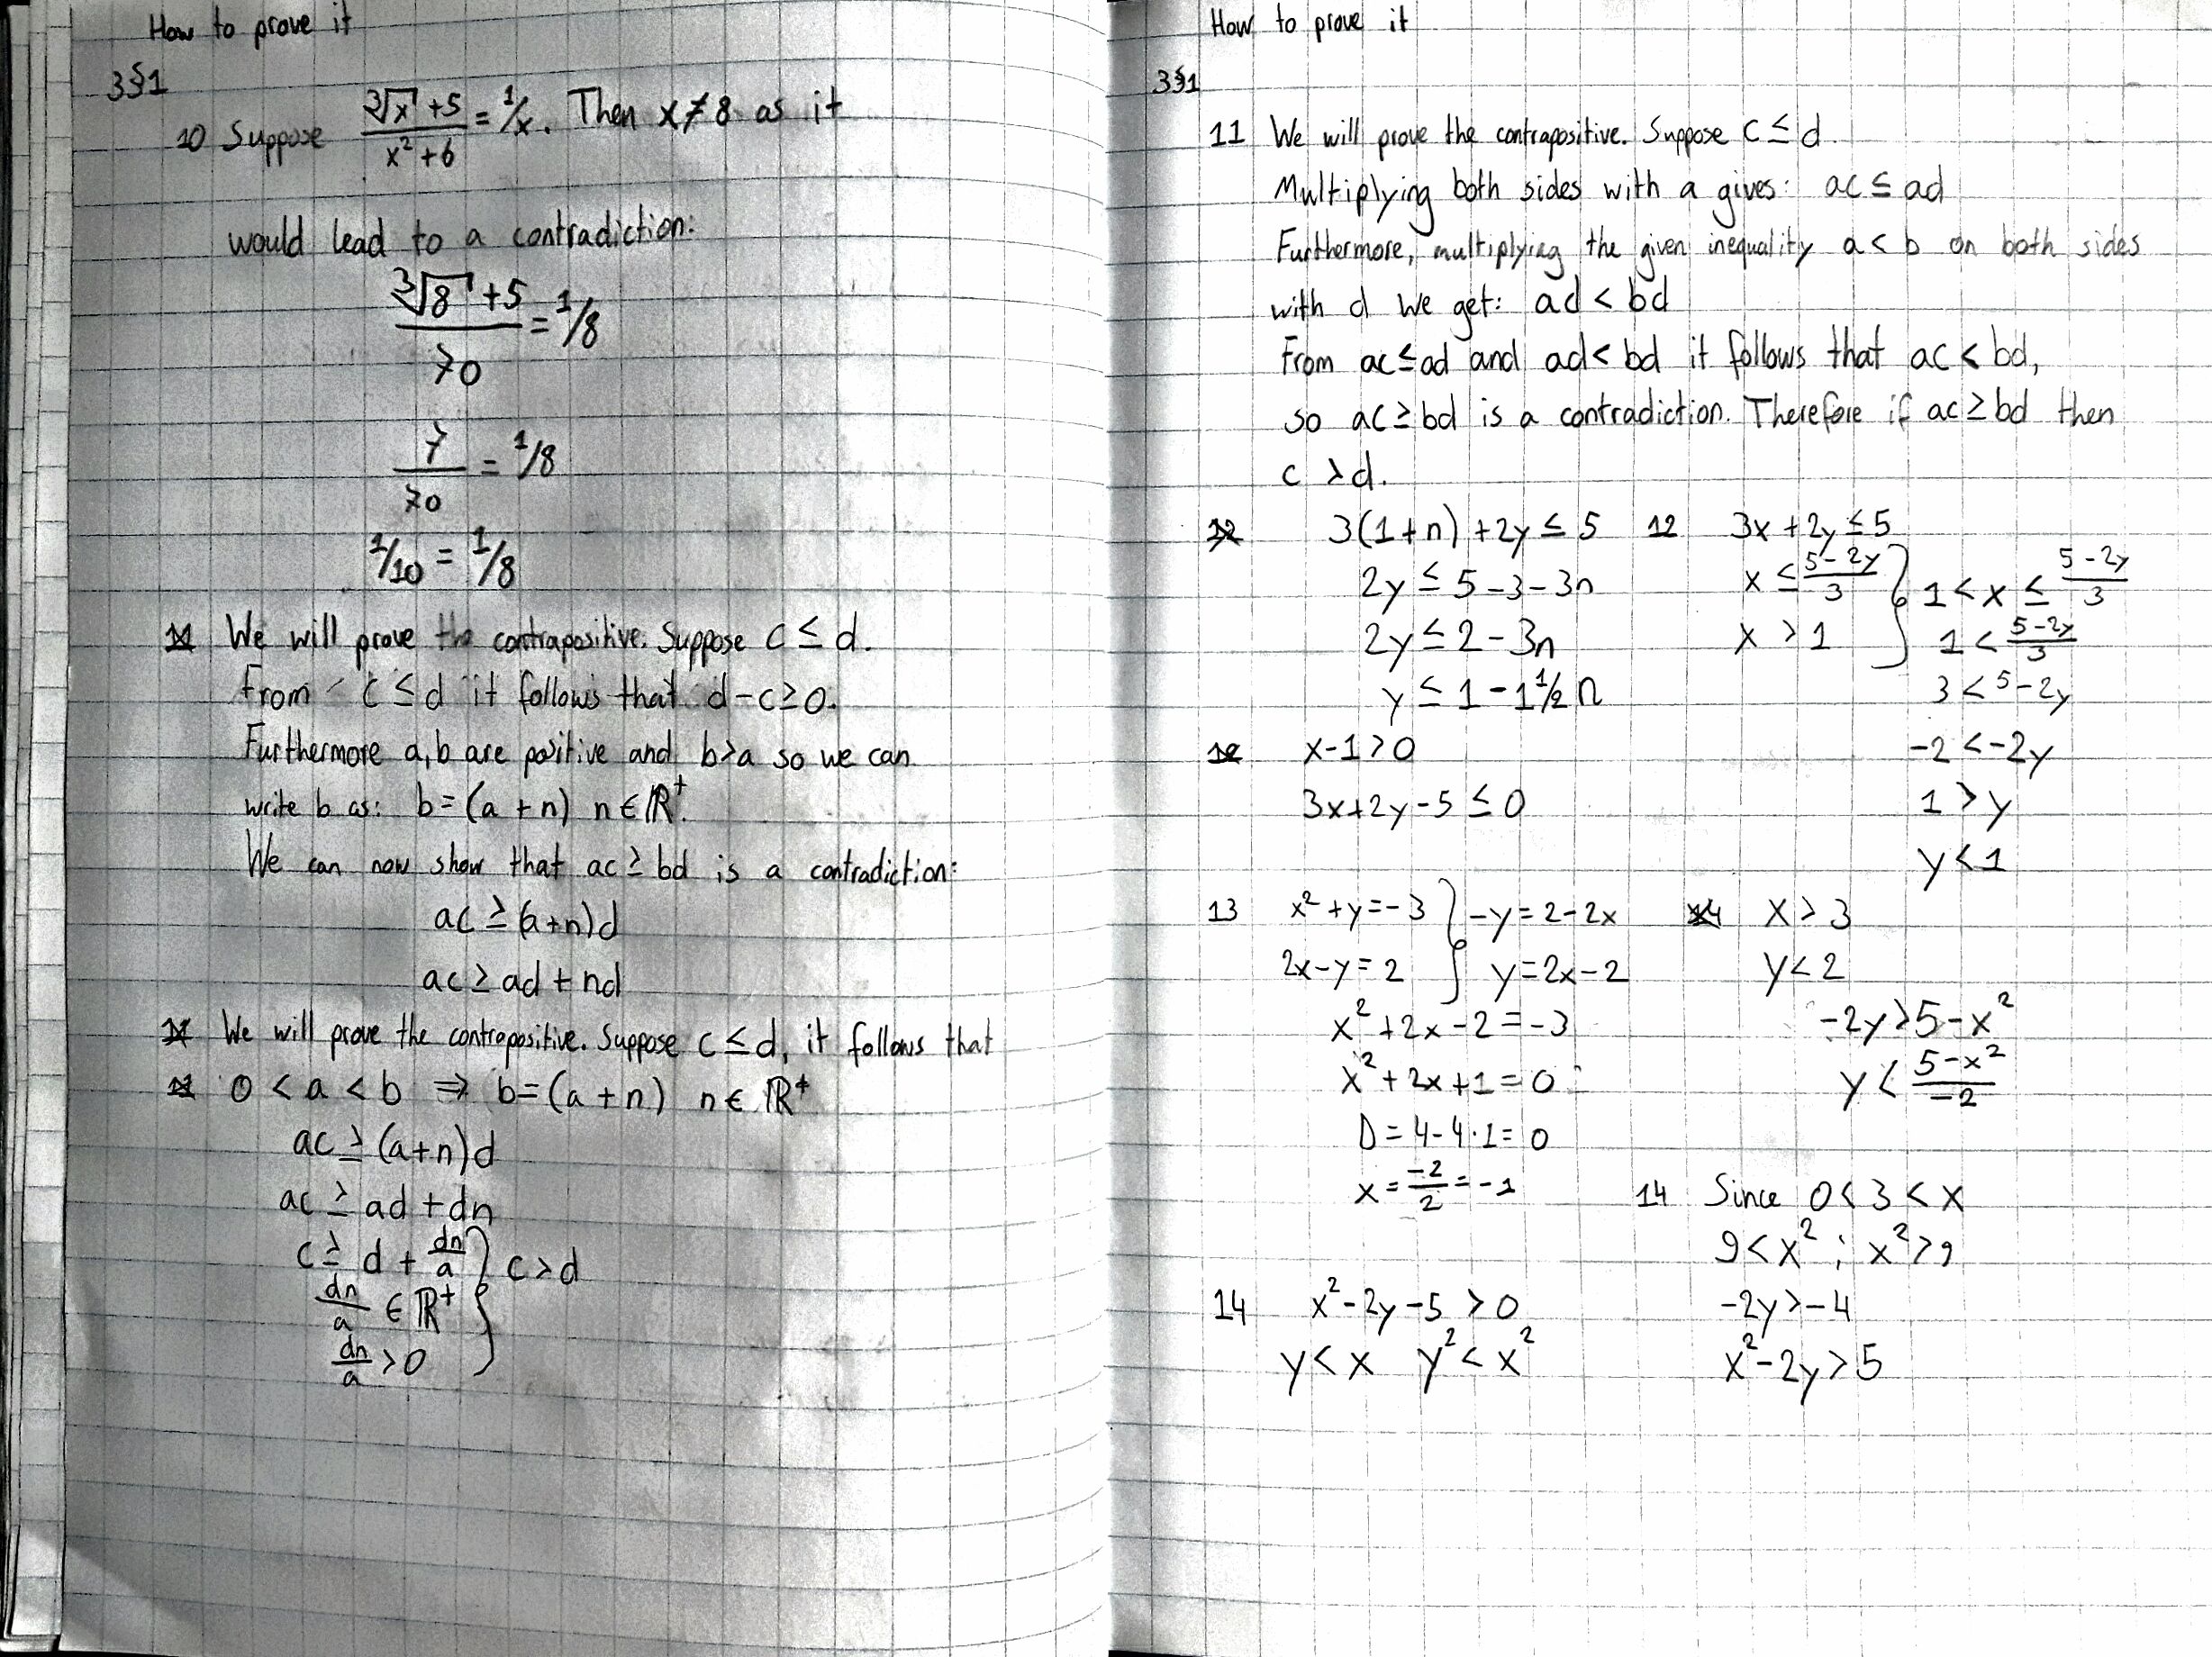 How to prove it
3§1
10 Suppose (∛x + 5)/(x² + 6) = 1/x. Then x ≠ 8 as it
would lead to a contradiction:
(∛8 + 5)/70 = 1/8
7/70 = 1/8
1/10 = 1/8
11 We will prove the contrapositive. Suppose c ≤ d.
From c ≤ d it follows that d - c ≥ 0.
Furthermore a, b are positive and b > a so we can
write b as: b = (a + n) n ∈ ℝ⁺.
We can now show that ac ≥ bd is a contradiction:
ac ≥ (a+n)d
ac ≥ ad + nd
11 We will prove the contrapositive. Suppose c ≤ d, it follows that
11 0 < a < b ⇒ b = (a + n) n ∈ ℝ⁺
ac ≥ (a+n)d
ac ≥ ad + dn
c ≥ d + dn/a } c > d
dn/a ∈ ℝ⁺
dn/a > 0
How to prove it
3§1
11 We will prove the contrapositive. Suppose c ≤ d.
Multiplying both sides with a gives: ac ≤ ad
Furthermore, multiplying the given inequality a < b on both sides
with d we get: ad < bd
From ac ≤ ad and ad < bd it follows that ac < bd,
so ac ≥ bd is a contradiction. Therefore if ac ≥ bd then
c > d.
12 3(1+n) + 2y ≤ 5
2y ≤ 5 - 3 - 3n
2y ≤ 2 - 3n
y ≤ 1 - 1½ n
12 x - 1 > 0
3x + 2y - 5 ≤ 0
12 3x + 2y ≤ 5
x ≤ (5 - 2y)/3
x > 1
} 1 < x ≤ (5 - 2y)/3
1 < (5 - 2y)/3
3 < 5 - 2y
-2 < -2y
1 > y
y < 1
13 x² + y = -3 } -y = 2 - 2x
2x - y = 2 } y = 2x - 2
x² + 2x - 2 = -3
x² + 2x + 1 = 0
D = 4 - 4·1 = 0
x = -2/2 = -1
14 x > 3
y < 2
-2y > 5 - x²
y < (5 - x²)/-2
14 x² - 2y - 5 > 0
y < x y² < x²
14 Since 0 < 3 < x
9 < x² ; x² > 9
-2y > -4
x² - 2y > 5